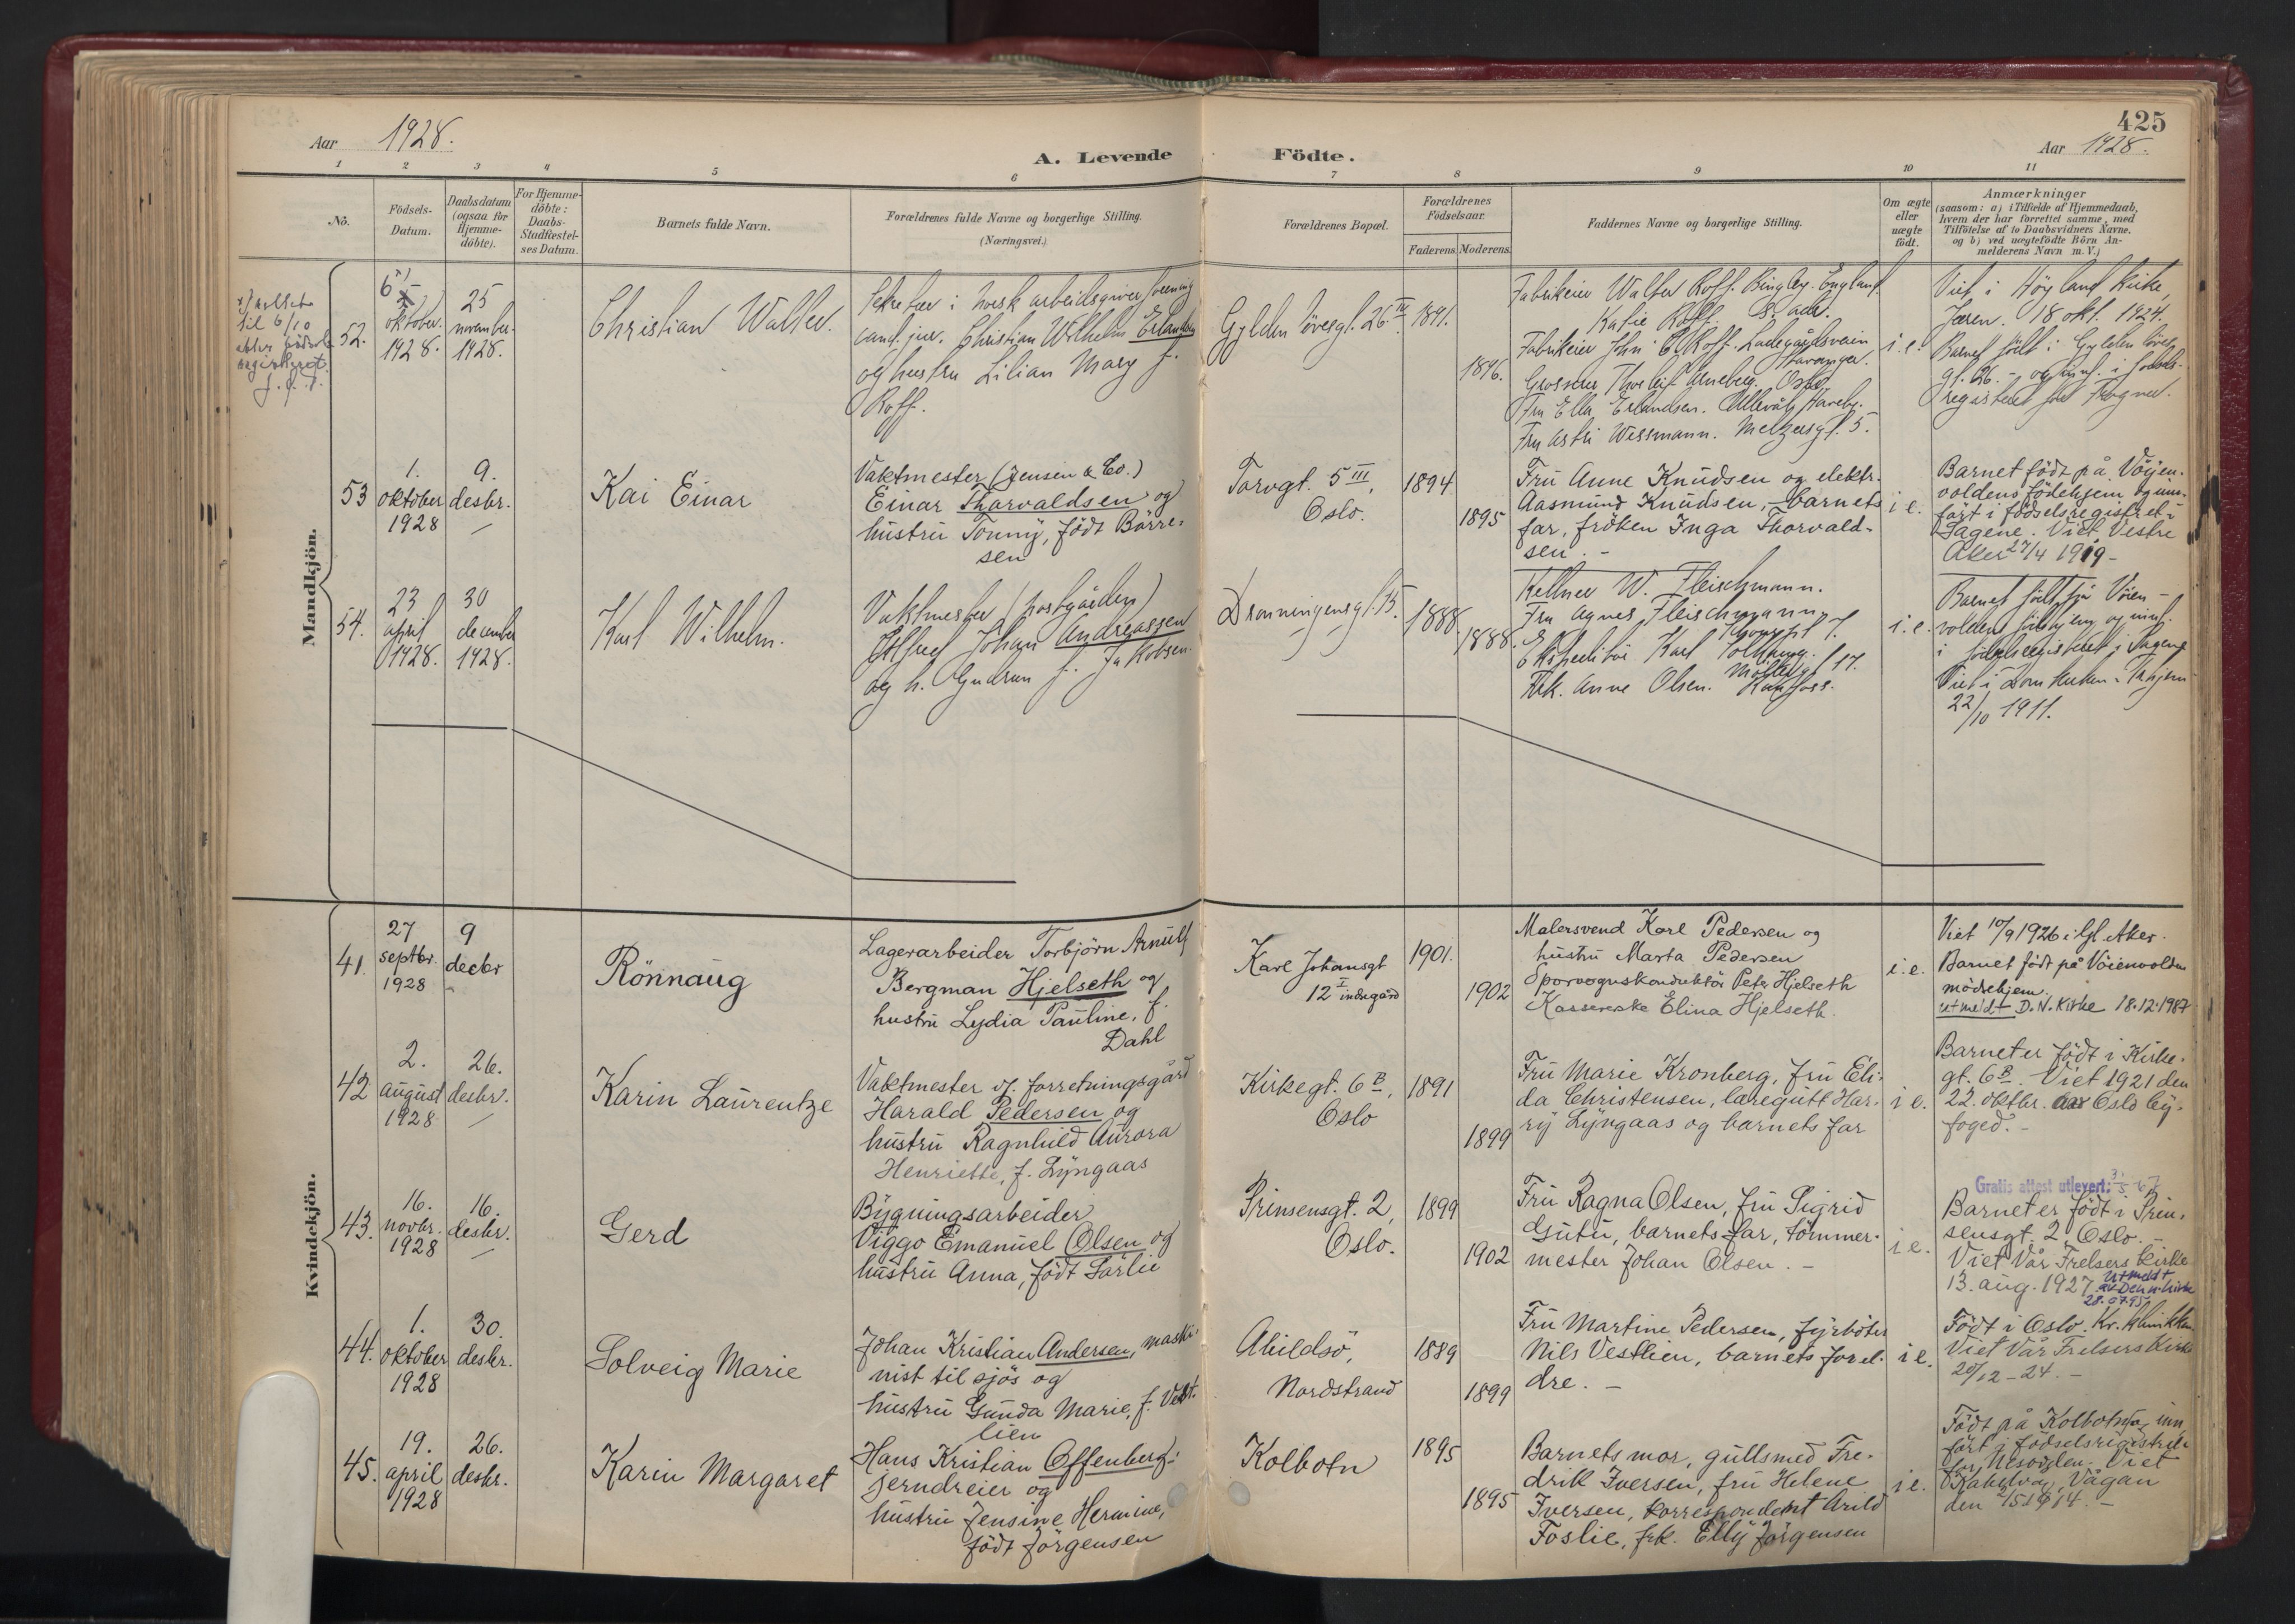 425
Aar 1928.
A. Levende Födte.
Aar 1928.
1 2 3 4 5 6 7 8 9 10 11
No.
Födsels-
Datum.
Daabsdatum
(ogsaa for
Hjemme-
döbte).
For Hjemme-
döbte:
Daabs-
Stadfæstel-
ses Datum.
Barnets fulde Navn.
Forældrenes fulde Navne og borgerlige Stilling.
(Næringsvei.)
Forældrenes Bopæl.
Forældrenes
Födselsaar.
Faderens. Moderens.
Faddernes Navne og borgerlige Stilling.
Om ægte
eller
uægte
födt.
Anmærkninger
(saasom: a) i Tilfælde af Hjemmedaab,
hvem der har forrettet samme, med
Tilföielse af to Daabsvidners Navne.
og b) ved uægtefödte Börn An-
melderens Navn m. V.)
Mandkjön.
til 6/10
52.
6
oktober
1928.
25
november
1928.
Christian Walter.
Sekretær i norsk arbeidsgiverforening
cand. jur. Christian Wilhelm Erlandsen
og hustru Lilian Mary f.
Roff.
Gyldenlövesgt. 26 III
1891.
1896.
Fabrikeier Walter Roff. Bingley. England.
Katie Roff.
Fabrikeier John C. Roff. Ladegårdsveien
Stavanger.
Grosserer Thorleif Arneberg. Oslo
Fru Ella Erlandsen. Ullevål Haveby.
Fru Astri Wessmann. Meltzersgt. 5.
i. e.
Viet i Höyland kirke,
Jæren. 18 okt. 1924.
Barnet födt i Gyldenlöves
gt. 26. - og innf. i födsels-
registeret for Frogner.
53
1.
oktober
1928
9.
desbr.
Kai Einar
Vaktmester (Jensen & Co.)
Einar Thorvaldsen og
hustru Tonny, födt Börre-
sen
Torvgt. 5 III,
Oslo.
1894
1895
Fru Anne Knudsen og elektr.
Aasmund Knudsen, barnets
far, fröken Inga Thorvald-
sen. -
i e.
Barnet födt på Vöyen-
voldens födehjem og inn-
fört i födselsregistret i
Sagene. Viet Vestre
Aker 27/4 1919 -
54.
23
april
1928.
30
december
1928.
Karl Wilhelm.
Vaktmester (postgården)
Johan Andreassen
og h. Gudrun f. Jakobsen.
Dronningensgt. 15.
1888
1888.
Kellner W. Fleischmann.
Fru Agnes Fleischmann
Ekspeditör Karl
Frk. Anne Olsen.
i. e.
Barnet födt på Vöien-
volden födehjem og innf.
i födselsregisteret i Sagene
Viet i Domkirken i Trhjem
22/10 1911.
Kvindekjön.
41.
27
septbr.
1928
9
decbr
Rönnaug
Lagerarbeider Torbjörn Arnulf
Bergman Hjelseth og
hustru Lydia Pauline, f.
Dahl
Karl Johansgt
12 I indregård
1901.
1902
Malersvend Karl Pedersen og
hustru Marta Pedersen
Sporvognskonduktör Peter Hjelseth
Kassererske Elina Hjelseth.
i. e.
Viet 10/9 1926 i Gl. Aker.
Barnet födt på Vöienvolden
mödrehjem.
utmeldt D.N. Kirke 18.12.1987
42
2.
august
1928
26.
desbr.
Karin Laurentze
Vaktmester v/ forretningsgård
Harald Pedersen og
hustru Ragnhild Aurora
Henriette, f. Lyngaas
Kirkegt. 6 B,
Oslo
1891
1899
Fru Marie Kronberg, fru Eli-
da Christensen, læregutt Har-
ry Lyngaas og barnets far
i e.
Barnet er födt i Kirke-
gt. 6 B. Viet 1921 den
22. oktbr. Oslo by-
foged. -
43.
16.
novbr.
1928
16.
desbr.
Gerd
Bygningsarbeider
Viggo Emanuel Olsen og
hustru Anna, födt Sörlie
Prinsensgt. 2,
Oslo.
1899
1902
Fru Ragna Olsen, fru Sigrid
Gutu, barnets far, tömmer-
mester Johan Olsen. -
i e.
Gratis attest utlevert:
Barnet er födt i Prin-
sensgt. 2 Oslo. -
Viet Vår Frelsers kirke
13. aug. 1927
Utmeldt
av Den n. kirke
28.07.95
44.
1.
oktober
1928
30.
desbr.
Solveig Marie
Johan Kristian Andersen, maski-
nist til sjös og
hustru Gunda Marie, f. Vest-
lien
Abildsö,
Nordstrand
1889
1899
Fru Martine Pedersen, fyrböter
Nils Vestlien, barnets forel-
dre. -
i e.
Födt i Oslo. Kv. klinikken
Viet Vår Frelsers Kirke
20/12 - 24. -
45.
19.
april
1928
26.
desbr.
Karin Margaret
Hans Kristian Offenberg,
jerndreier og
hustru Jensine Hermine,
födt Jörgensen
Kolbotn
1895
1895
Barnets mor, gullsmed Fre-
drik Iversen, fru Helene
Iversen, korrespondent Arild
Foslie, frk. Elly Jörgensen
i e.
Födt på Kolbotn, inn-
fört i födselsregistret
for Nesodden. Viet
Kabelvåg, Vågan